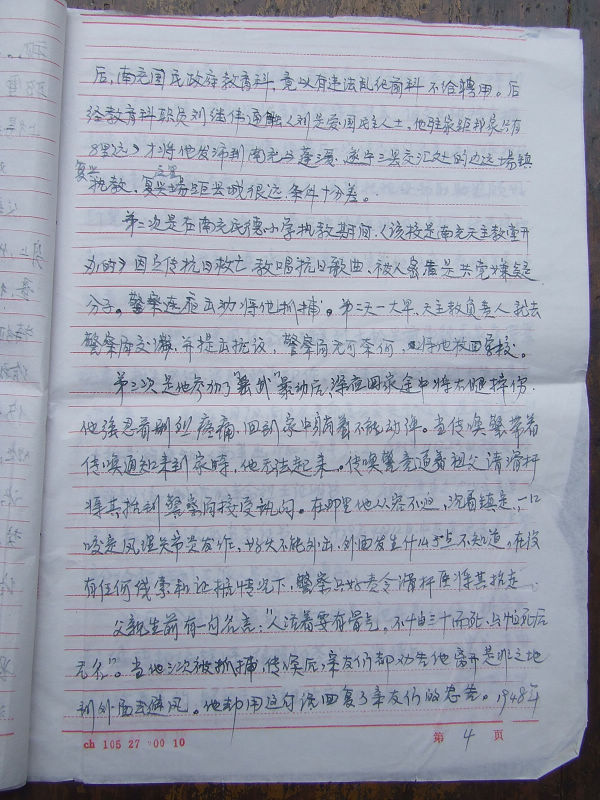 后，南充国民政府教育科，竟以有违法乱纪前科不给聘用。后
经教育科职员刘继伟通融（刘是爱国民主人士，他驻家距我家只有
8里远）才将他发沛到南充与蓬溪、遂宁三县交汇处的边远场镇
复兴 这里
执教，复兴场距县城很远，条件十分差。
第二次是在南充民德小学执教期间（该校是南充天主教堂开
办的）因宣传抗日救亡，教唱抗日歌曲，被人密告是共党嫌疑
分子。警察连宿出动将他抓捕。第二天一大早，天主教负责人就去
警察局交涉，并提出抗议，警察局无可奈何，将他放回学校。
第三次是他参加了“暴动后，深夜回家途中将右腿摔伤，
他强忍着剧烈疼痛，回到家中躺着不能动弹。当传唤警带着
传唤通知来到家時，他无法起来。传唤警竟逼着祖父请滑杆
将其抬到警察局接受讯问。在那里他从容不迫，沉着镇定，一口
咬定风湿关节炎发作，好久不能外出，外面发生什么事点不知道，在没
有任何线索和证据情况下，警察只好责令滑杆匠将其抬走。
父亲生前有一句名言：“人活着要有骨气，不怕三十而死，只怕死后
无名”。当他三次被抓捕，传唤后，亲友们都劝告他离开是非之地
到外面去避风。他却用这句话回复了亲友们的忠告。1948年
ch 105 27 00 10
第 4 页